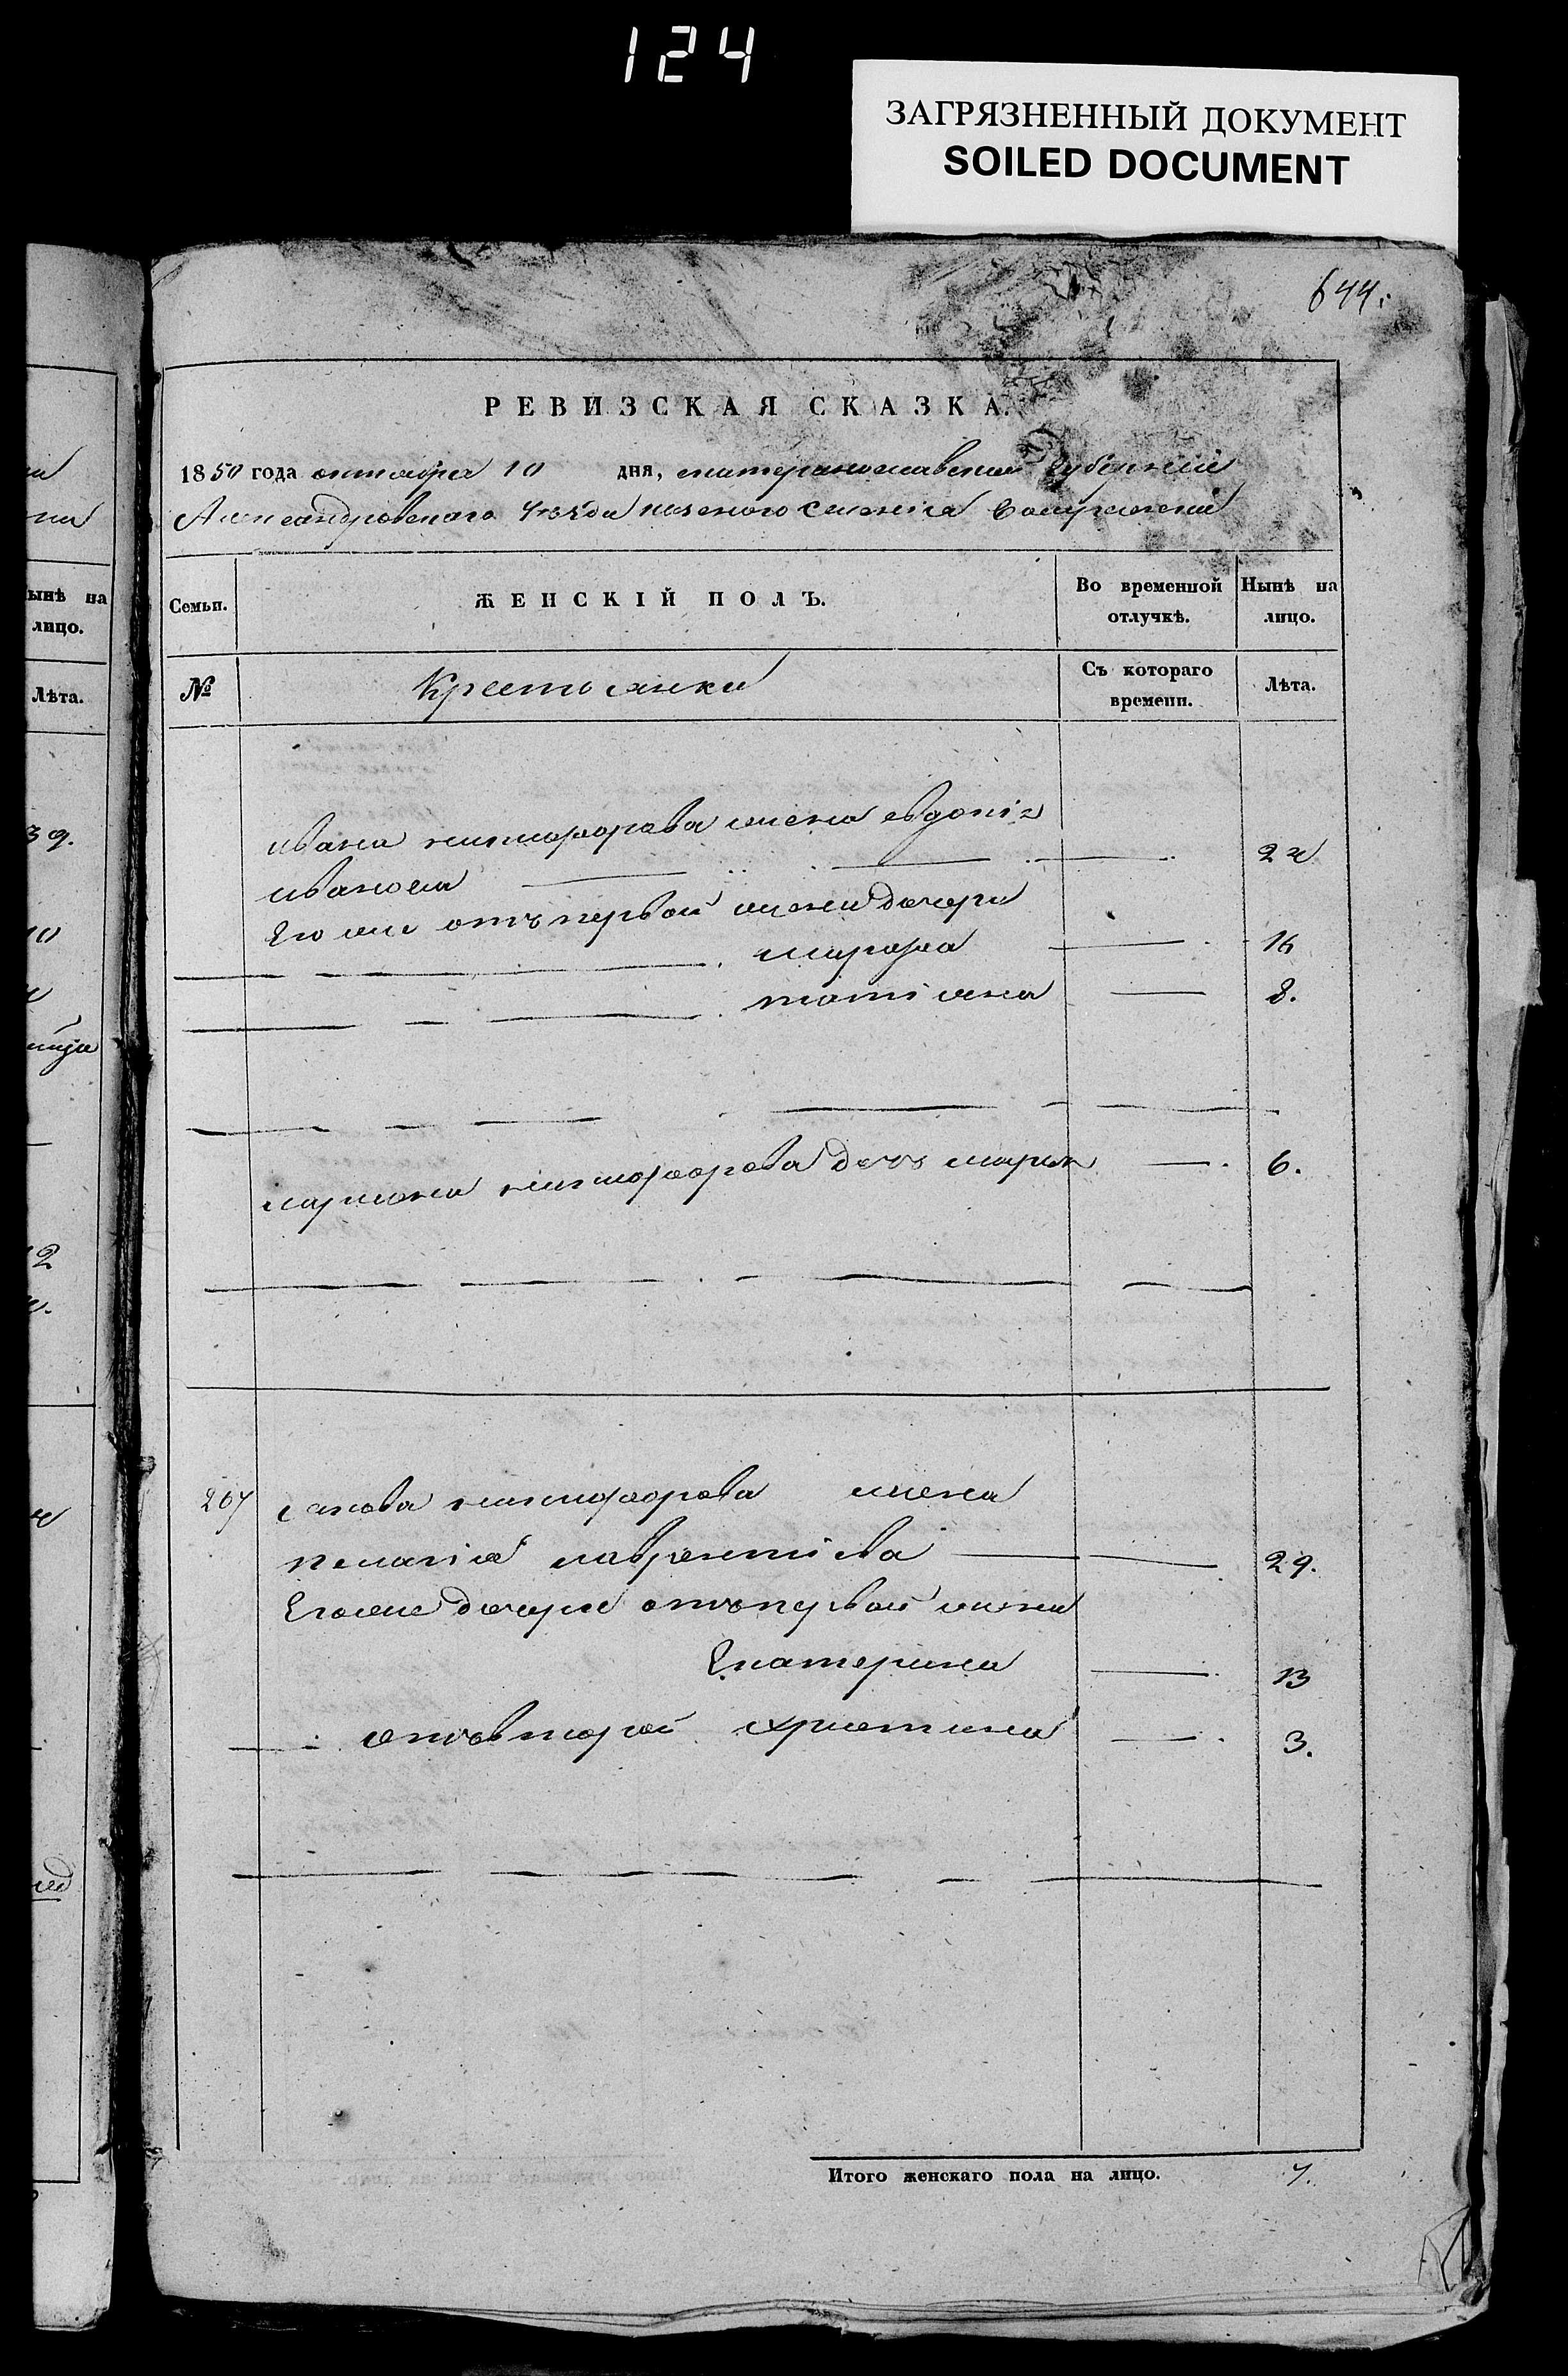 124
ЗАГРЯЗНЕННЫЙ ДОКУМЕНТ
SOILED DOCUMENT
644.
РЕВИЗСКАЯ СКАЗКА.
1850 года октября 10 дня, екатеринославской губерніи
Александровскаго уезда казеного селенія
Семьи.
ЖЕНСКІЙ ПОЛЪ.
Во временной отлучкѣ.
Нынѣ на лицо.
№
Крестьянки
Съ котораго времени.
Лѣта.
ивана никифорова жена евдокія
иванова 24
Его же отъ первой жены дочери
марфа 16
татіана 8.
никифорова дочь марья 6.
207 якова никифорова жена
пелагіа лаврентіева 29.
Егоже дочери отъ первой жены
Екатерина 13
отъ второй христина 3.
Итого женскаго пола на лицо. 7.
ынѣ на
лицо.
Лѣта.
39.
10